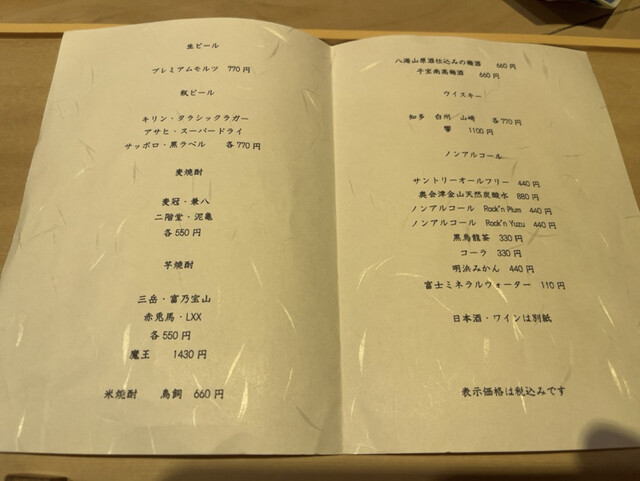 生ビール
プレミアムモルツ 770円
瓶ビール
キリン・クラシックラガー
アサヒ・スーパードライ
サッポロ・黒ラベル 各770円
麦焼酎
麦冠・兼八
二階堂・泥亀
各550円
芋焼酎
三岳・富乃宝山
赤兎馬・LXX
各550円
魔王 1430円
米焼酎 鳥飼 660円
八海山原酒仕込みの梅酒 660円
子宝南高梅酒 660円
ウイスキー
知多 白州 山崎 各770円
響 1100円
ノンアルコール
サントリーオールフリー 440円
奥会津金山天然炭酸水 880円
ノンアルコール Rock'n Plum 440円
ノンアルコール Rock'n Yuzu 440円
黒烏龍茶 330円
コーラ 330円
明浜みかん 440円
富士ミネラルウォーター 110円
日本酒・ワインは別紙
表示価格は税込みです